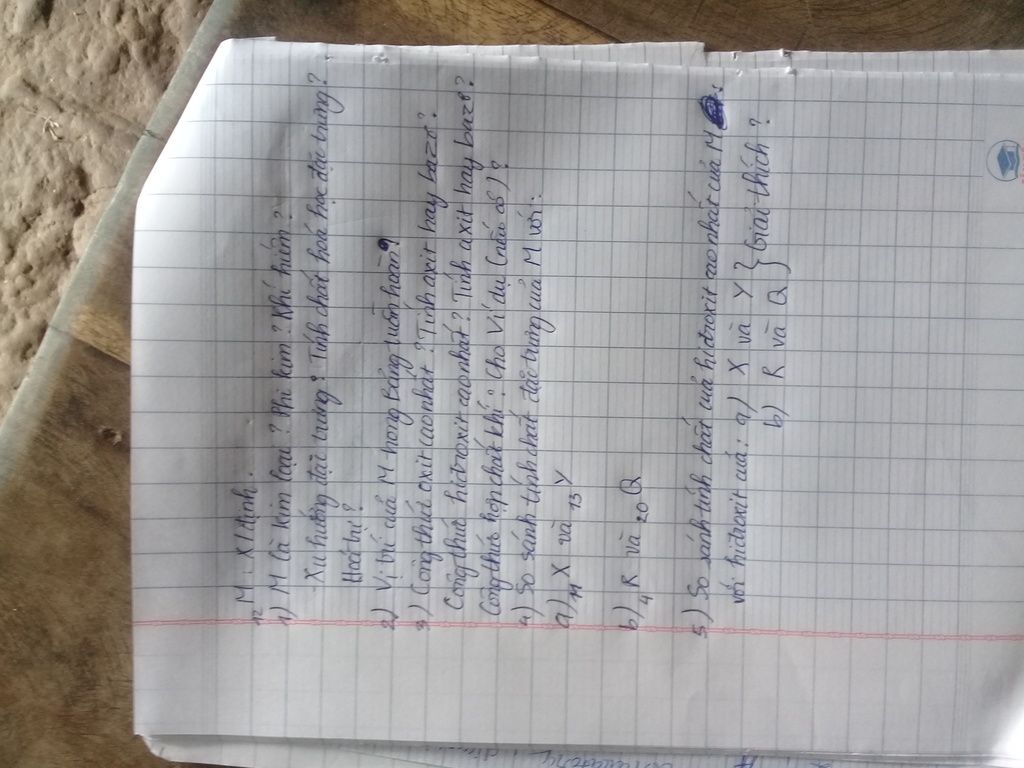 12 M : Xđịnh.
1) M là kim loại ? Phi kim ? Khí hiếm ?
- Xu hướng đặc trưng ? Tính chất hoá học đặc trưng ?
Hoá trị ?
2) Vị trí của M trong bảng tuần hoàn ?
3) Công thức oxit cao nhất ? Tính axit hay bazơ ?
Công thức hiđroxit cao nhất ? Tính axit hay bazơ ?
Công thức hợp chất khí ? Cho ví dụ (nếu có) ?
4) So sánh tính chất đặc trưng của M với :
a) 11 X và 13 Y
b) 4 R và 20 Q
5) So sánh tính chất của hiđroxit cao nhất của M
với hiđroxit của : a) X và Y } Giải thích ?
b) R và Q